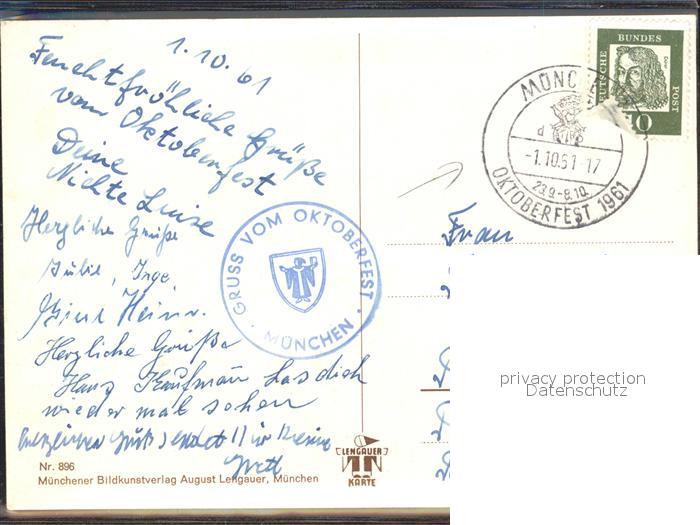 1.10.61
Feuchtfröhliche Grüße
vom Oktoberfest
Deine
Nichte Luise
Herzliche Grüße
Julie, Inge
Heinr.
Herzliche Grüße
Hans Kaufmann Lass dich
wieder mal sehen
sendet
GRUSS VOM OKTOBERFEST
MÜNCHEN
Nr. 896
Münchener Bildkunstverlag August Lengauer, München
LENGAUER
KARTE
DEUTSCHE BUNDES POST
Dürer
10
MÜNCHEN
-1.10.61-17
23.9.-8.10.
OKTOBERFEST 1961
Frau
privacy protection
Datenschutz